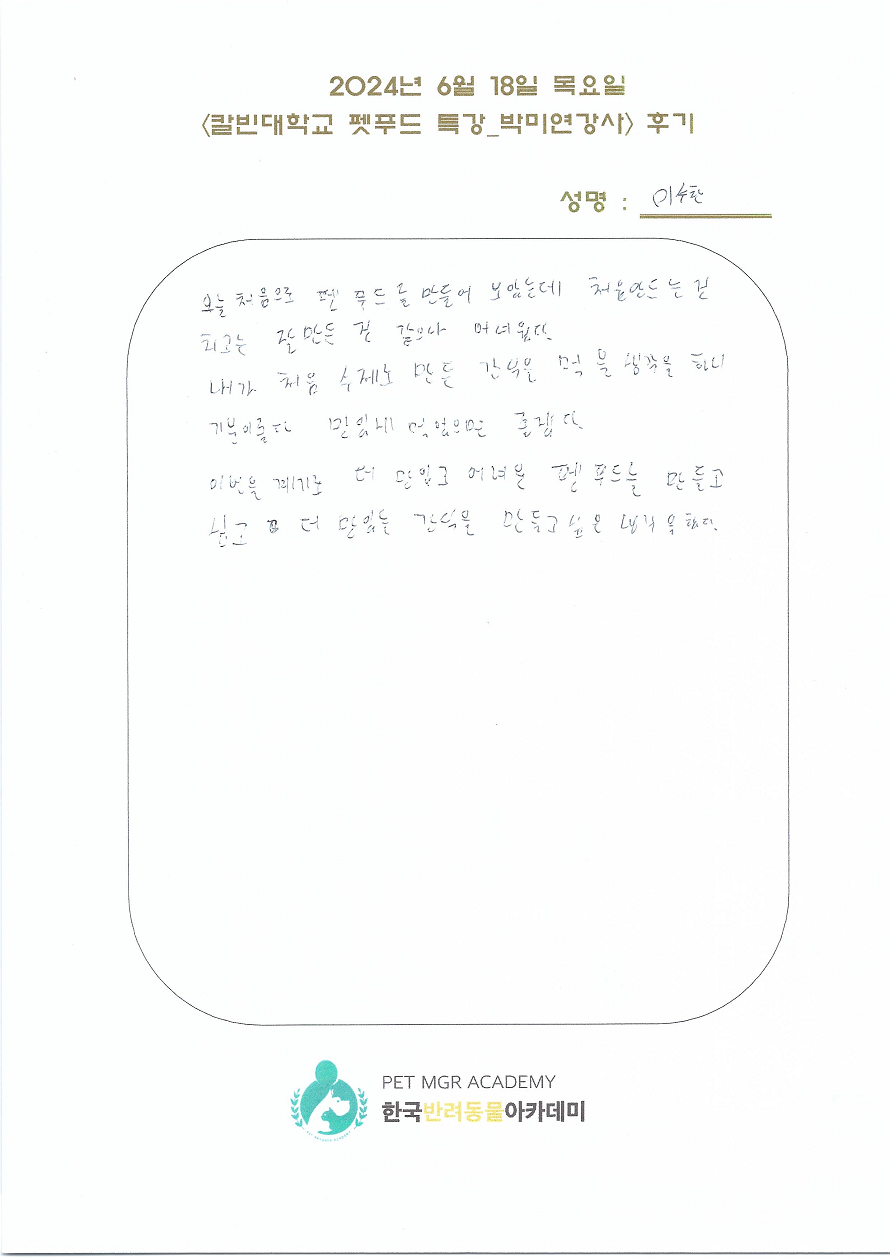 2024년 6월 18일 목요일
<칼빈대학교 펫푸드 특강_박미연강사> 후기
성명 : 이수환
오늘 처음으로 펫 푸드를 만들어 보았는데 처음만드는건
치고는 잘만든 것 같으나 어려웠다.
내가 처음 수제로 만든 간식을 먹을 생각을 하니
기분이좋다 맛있게 먹었으면 좋겠다.
이번을 계기로 더 맛있고 어려운 펫 푸드를 만들고
싶고 더 맛있는 간식을 만들고 싶은 생각을 했다.
PET MGR ACADEMY
한국반려동물아카데미